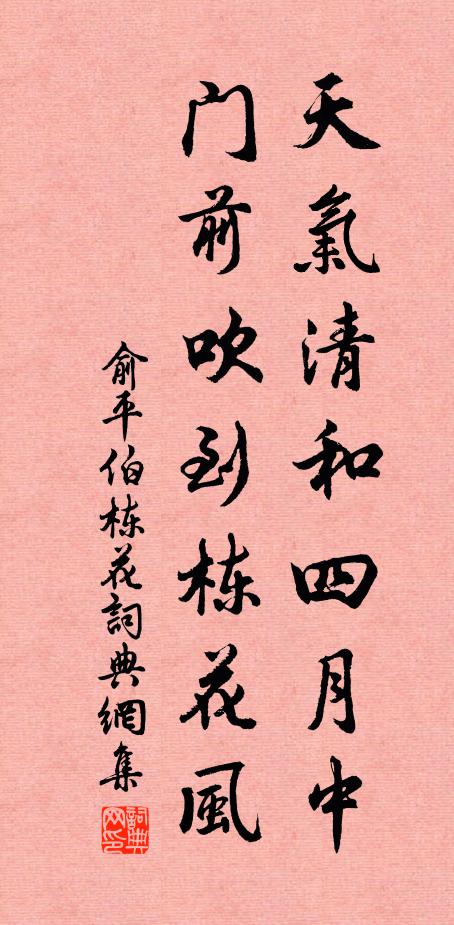 天氣清和四月中
門前吹到楝花風
俞平伯楝花詞典網集
詞典網印